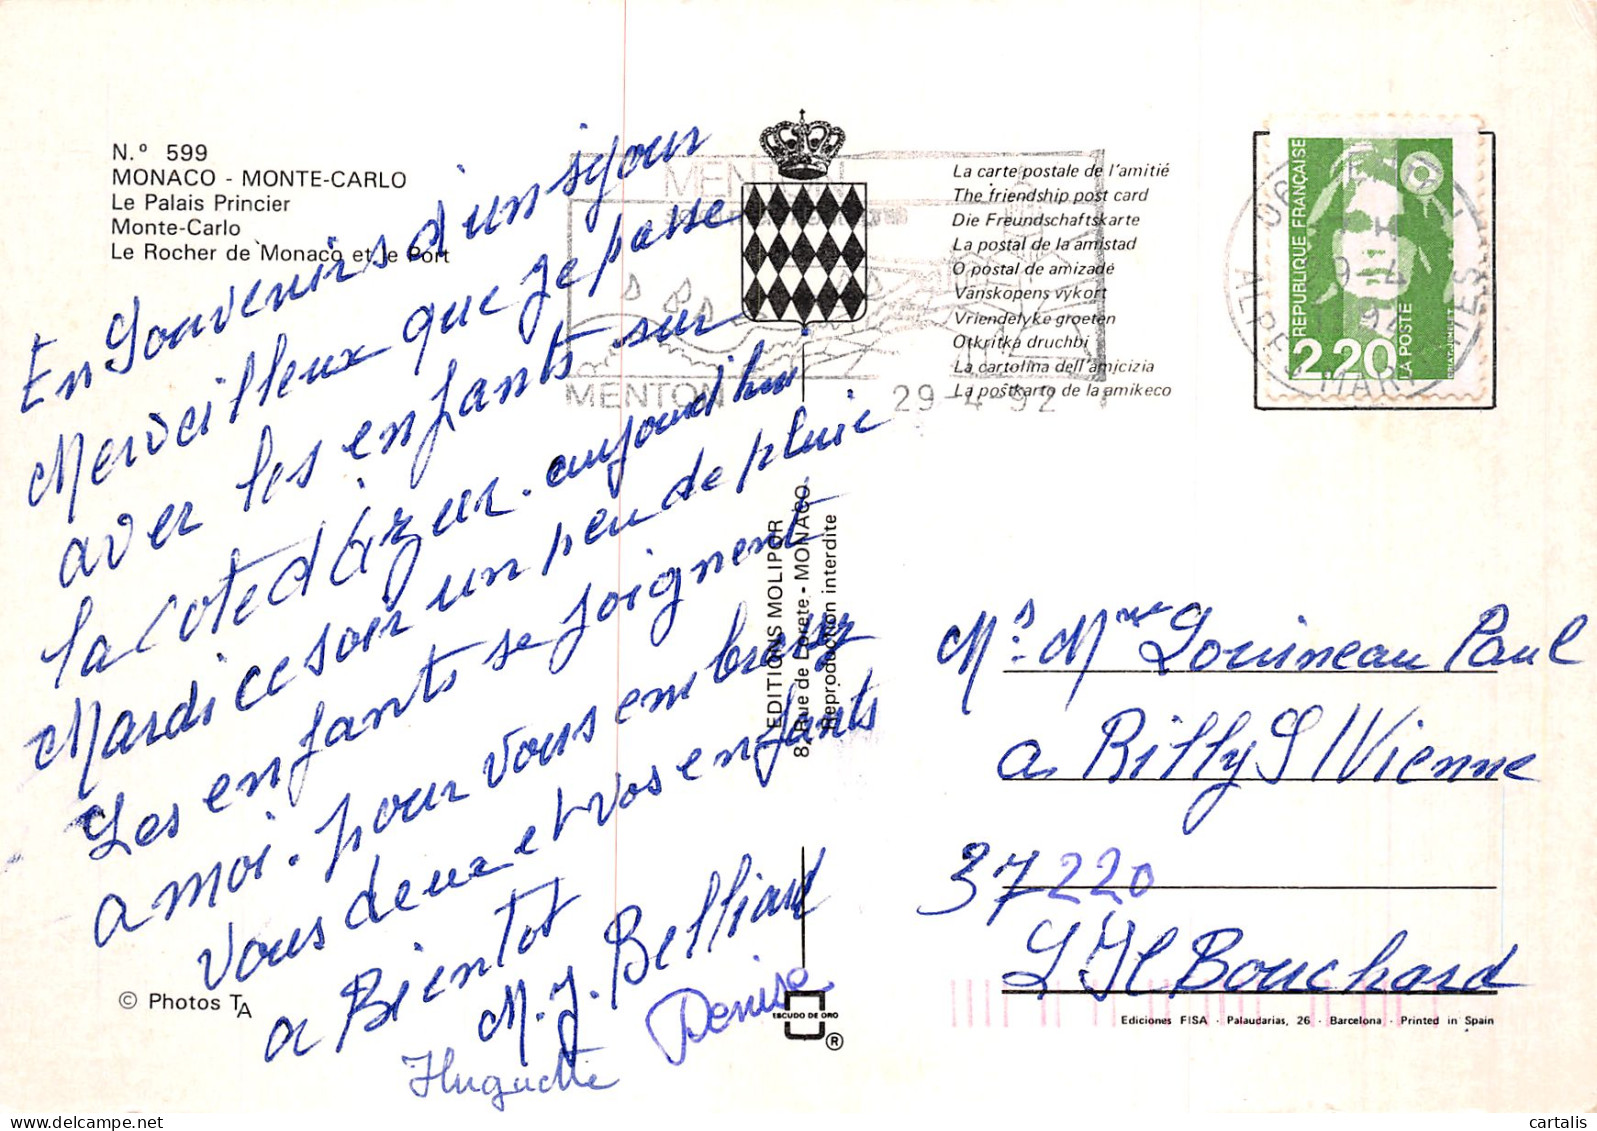 N.º 599
MONACO - MONTE-CARLO
Le Palais Princier
Monte-Carlo
Le Rocher de Monaco et le Port
En Souvenirs d'un sejour
Merveilleux que je passe
aver les enfants sur
la cote d'Azur. aujourd'hui
Mardi ce soir un peu de pluie
Les enfants se soignent
a moi. pour vous embrassez
vous deux et vos enfants
a Bientot
M. J. Belliard
Huguette Denise
© Photos TA
MENTON
MENTON
29-4-92
La carte postale de l'amitié
The friendship post card
Die Freundschaftskarte
La postal de la amistad
O postal de amizade
Vänskopens vykort
Vriendelyke groeten
Otkritka druchbi
La cartolina dell'amicizia
La postkarto de la amikeco
EDITIONS MOLIPOR
8, Rue de Lorete, - MONACO
Reproduction interdite
ESCUDO DE ORO
®
REPUBLIQUE FRANÇAISE
2,20
LA POSTE
06
ALPES MARITIMES
Mr. Mme Louineau Paul
a Rilly S/Vienne
37220
L'Il Bouchard
Ediciones FISA - Palaudarias, 26 - Barcelona - Printed in Spain
cartalis